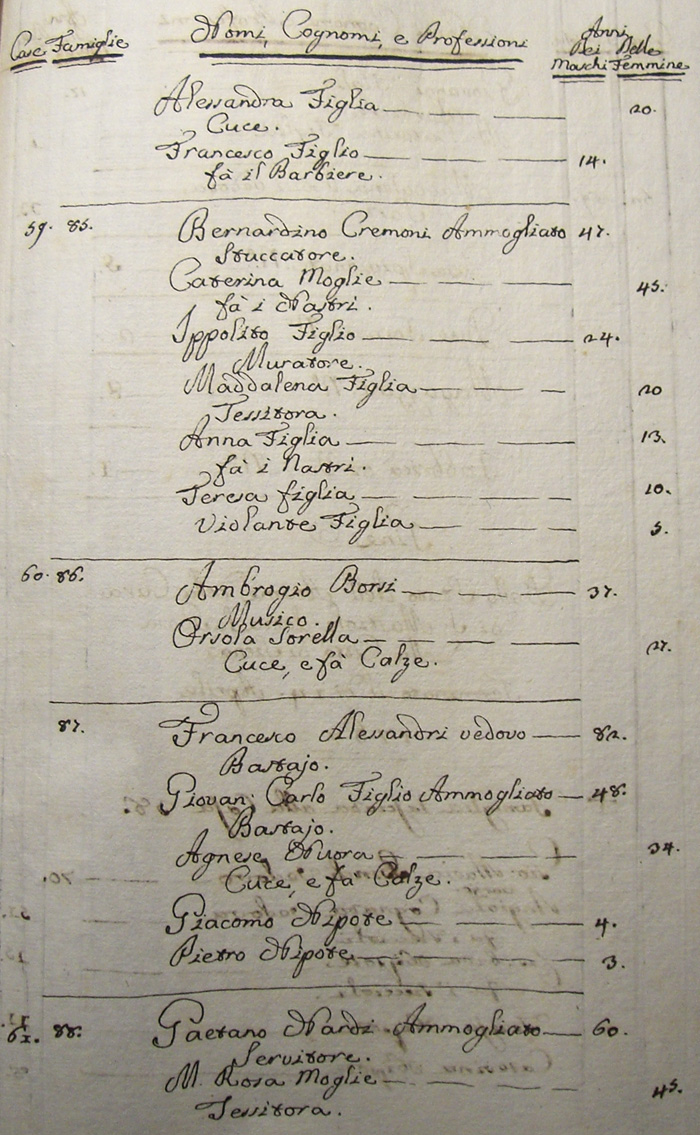 Case Famiglie Nomi, Cognomi, e Professioni Anni
Dei Delle
Maschi Femmine
Alessandra Figlia 20.
Cuce.
Francesco Figlio 14.
fà il Barbiere.
59. 85. Bernardino Cremoni Ammogliato 47.
Stuccatore.
Caterina Moglie 45.
fà i Nastri.
Ippolito Figlio 24.
Muratore.
Maddalena Figlia 20
Tessitora.
Anna Figlia 13.
fà i Nastri.
Teresa figlia 10.
Violante Figlia 5.
60. 86. Ambrogio Borsi 37.
Musico.
Orsola Sorella 27.
Cuce, e fà Calze.
87. Francesco Alessandri vedovo 82.
Bastajo.
Giovan: Carlo Figlio Ammogliato 48.
Bastajo.
Agnese Nuora 34.
Cuce, e fà Calze.
Giacomo Nipote 4.
Pietro Nipote 3.
61. 88. Gaetano Nardi Ammogliato 60.
Servitore.
M. Rosa Moglie 45.
Tessitora.